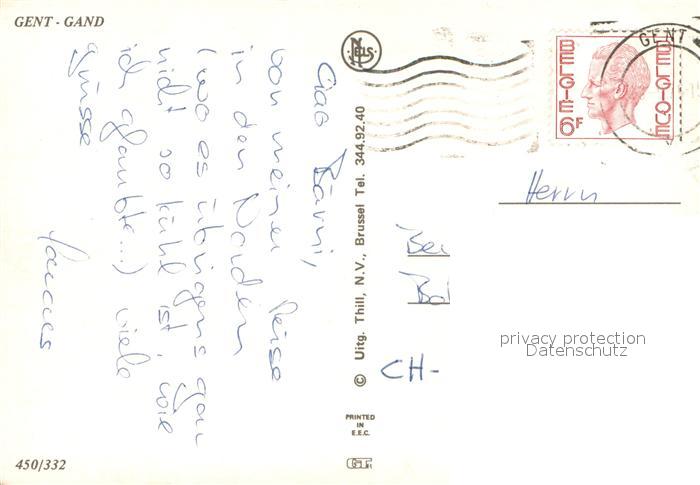 GENT - GAND
Ciao Bärni,
von meiner Reise
in den Norden
(wo es übrigens gar
nicht so kühl ist, wie
ich glaubte...) viele
grüsse
450/332
NELS
© Uitg. Thill, N.V., Brussel Tel. 344.92.40
PRINTED
IN
E.E.C.
GENT
BELGIE
BELGIQUE
6F
Herrn
Be
Bo
CH-
privacy protection
Datenschutz